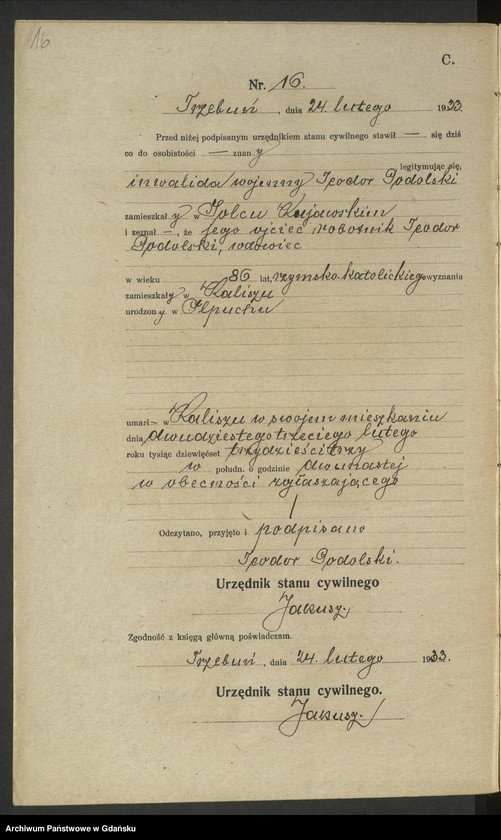 16
C.
Nr. 16.
Trzebuń, dnia 24. lutego 1933.
Przed niżej podpisanym urzędnikiem stanu cywilnego stawił — się dziś
co do osobistości — znany
legitymując się,
inwalida wojenny Teodor Podolski
zamieszkały w Solcu Kujawskim
i zeznał —, że jego ojciec robotnik Teodor
Podolski, wdowiec
w wieku 86 lat, rzymsko-katolickiego wyznania
zamieszkały w Kaliszu
urodzony w Olpuchu
umarł — w Kaliszu w swojem mieszkaniu
dnia dwudziestego trzeciego lutego
roku tysiąc dziewięćset trzydzieści trzy
w połudn. o godzinie dwunastej
w obecności zgłaszającego
Odczytano, przyjęto i podpisano
Teodor Podolski.
Urzędnik stanu cywilnego
Jakusz.
Zgodność z księgą główną poświadczam.
Trzebuń, dnia 24. lutego 1933.
Urzędnik stanu cywilnego.
Jakusz.
Archiwum Państwowe w Gdańsku